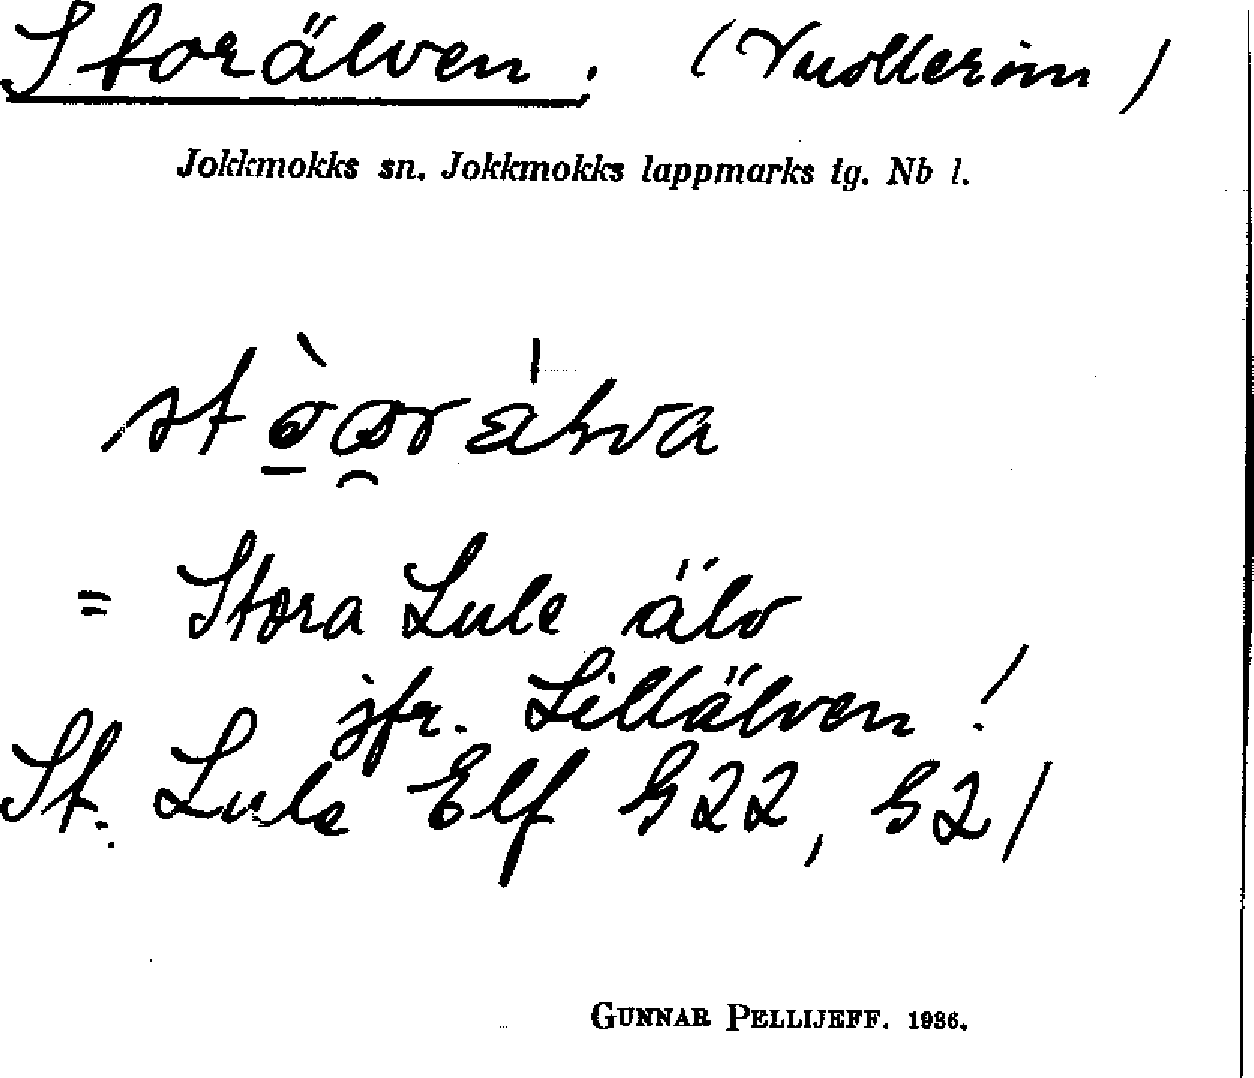 Storälven. (Vuollerim)
Jokkmokks sn. Jokkmokks lappmarks tg. Nb l.
= Stora Lule älv
jfr. Lillälven!
St. Lule Elf G22, G21
GUNNAR PELLIJEFF. 1936.